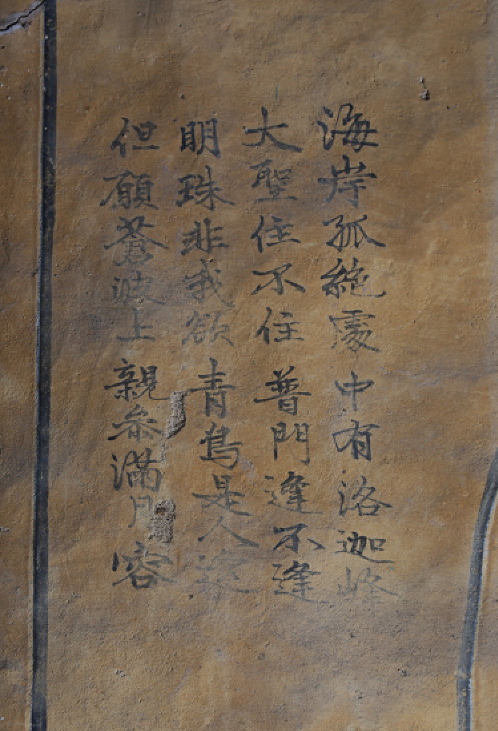 海岸孤絶處 中有洛迦峰
大聖住不住 普門逢不逢
明珠非我欲 青鳥是人逢
但願蒼波上 親叅滿月容